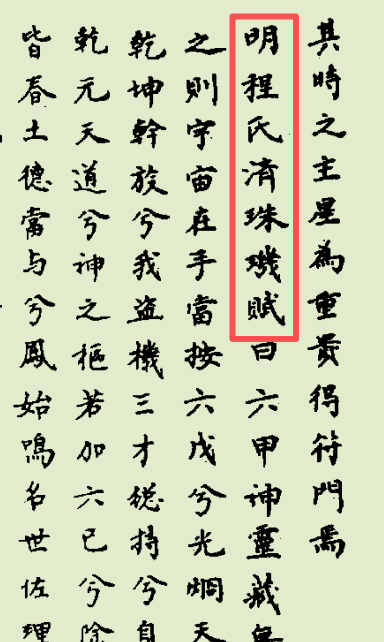 其時之主星為重貴得符門焉
明程氏済珠璣賦曰六甲神靈藏
之則宇宙在手當按六戊兮光烱天
乾坤幹旋兮我盗機三才総持兮自
乾元天道兮神之樞若加六己兮除
皆春土德當与兮鳳始鳴名世佐理